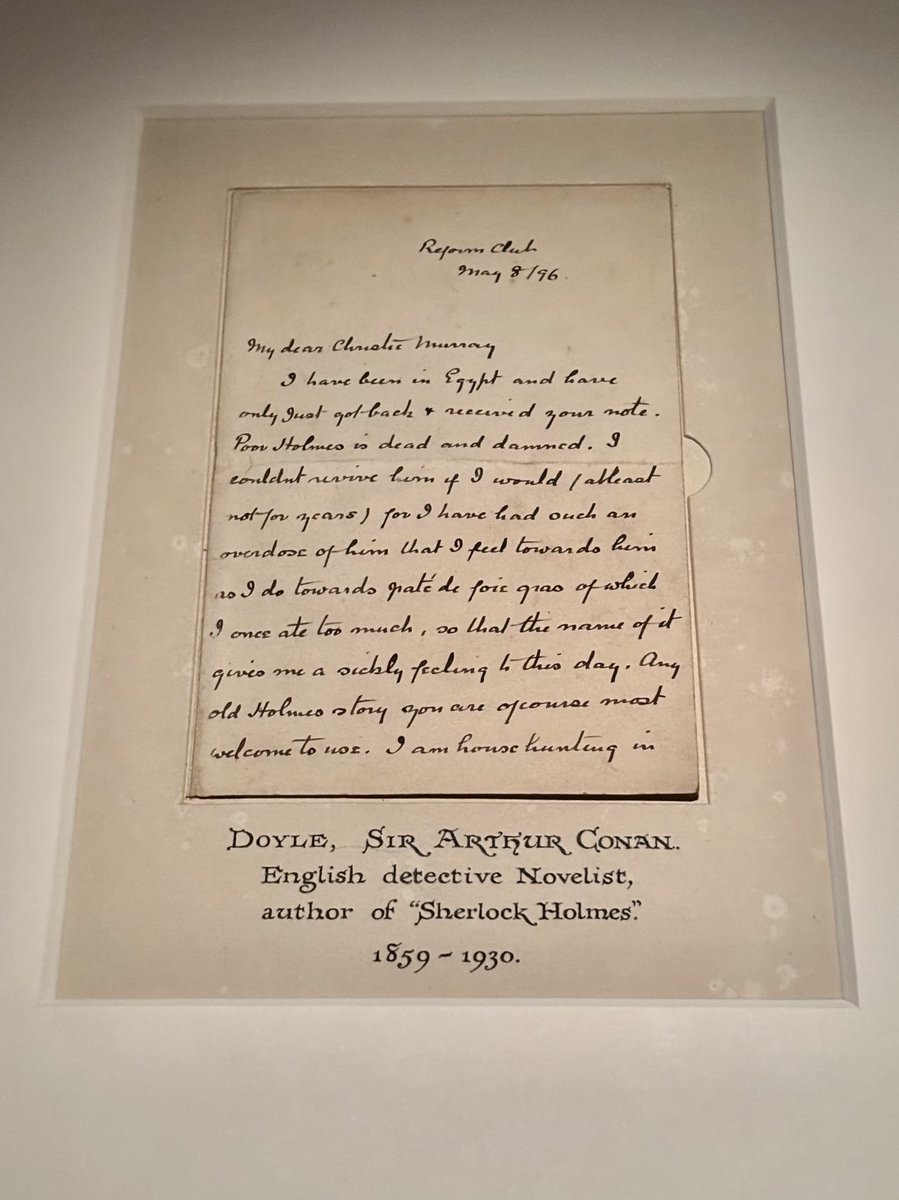 Reform Club
May 8/96.
My dear Christie Murray
I have been in Egypt and have
only just got back & received your note.
Poor Holmes is dead and damned. I
couldnt revive him if I would (atleast
not for years) for I have had such an
overdose of him that I feel towards him
as I do towards paté de foie gras of which
I once ate too much, so that the name of it
gives me a sickly feeling to this day. Any
old Holmes story you are ofcourse most
welcome to use. I am house hunting in
DOYLE, SIR ARTHUR CONAN.
English detective Novelist,
author of “Sherlock Holmes”.
1859 – 1930.